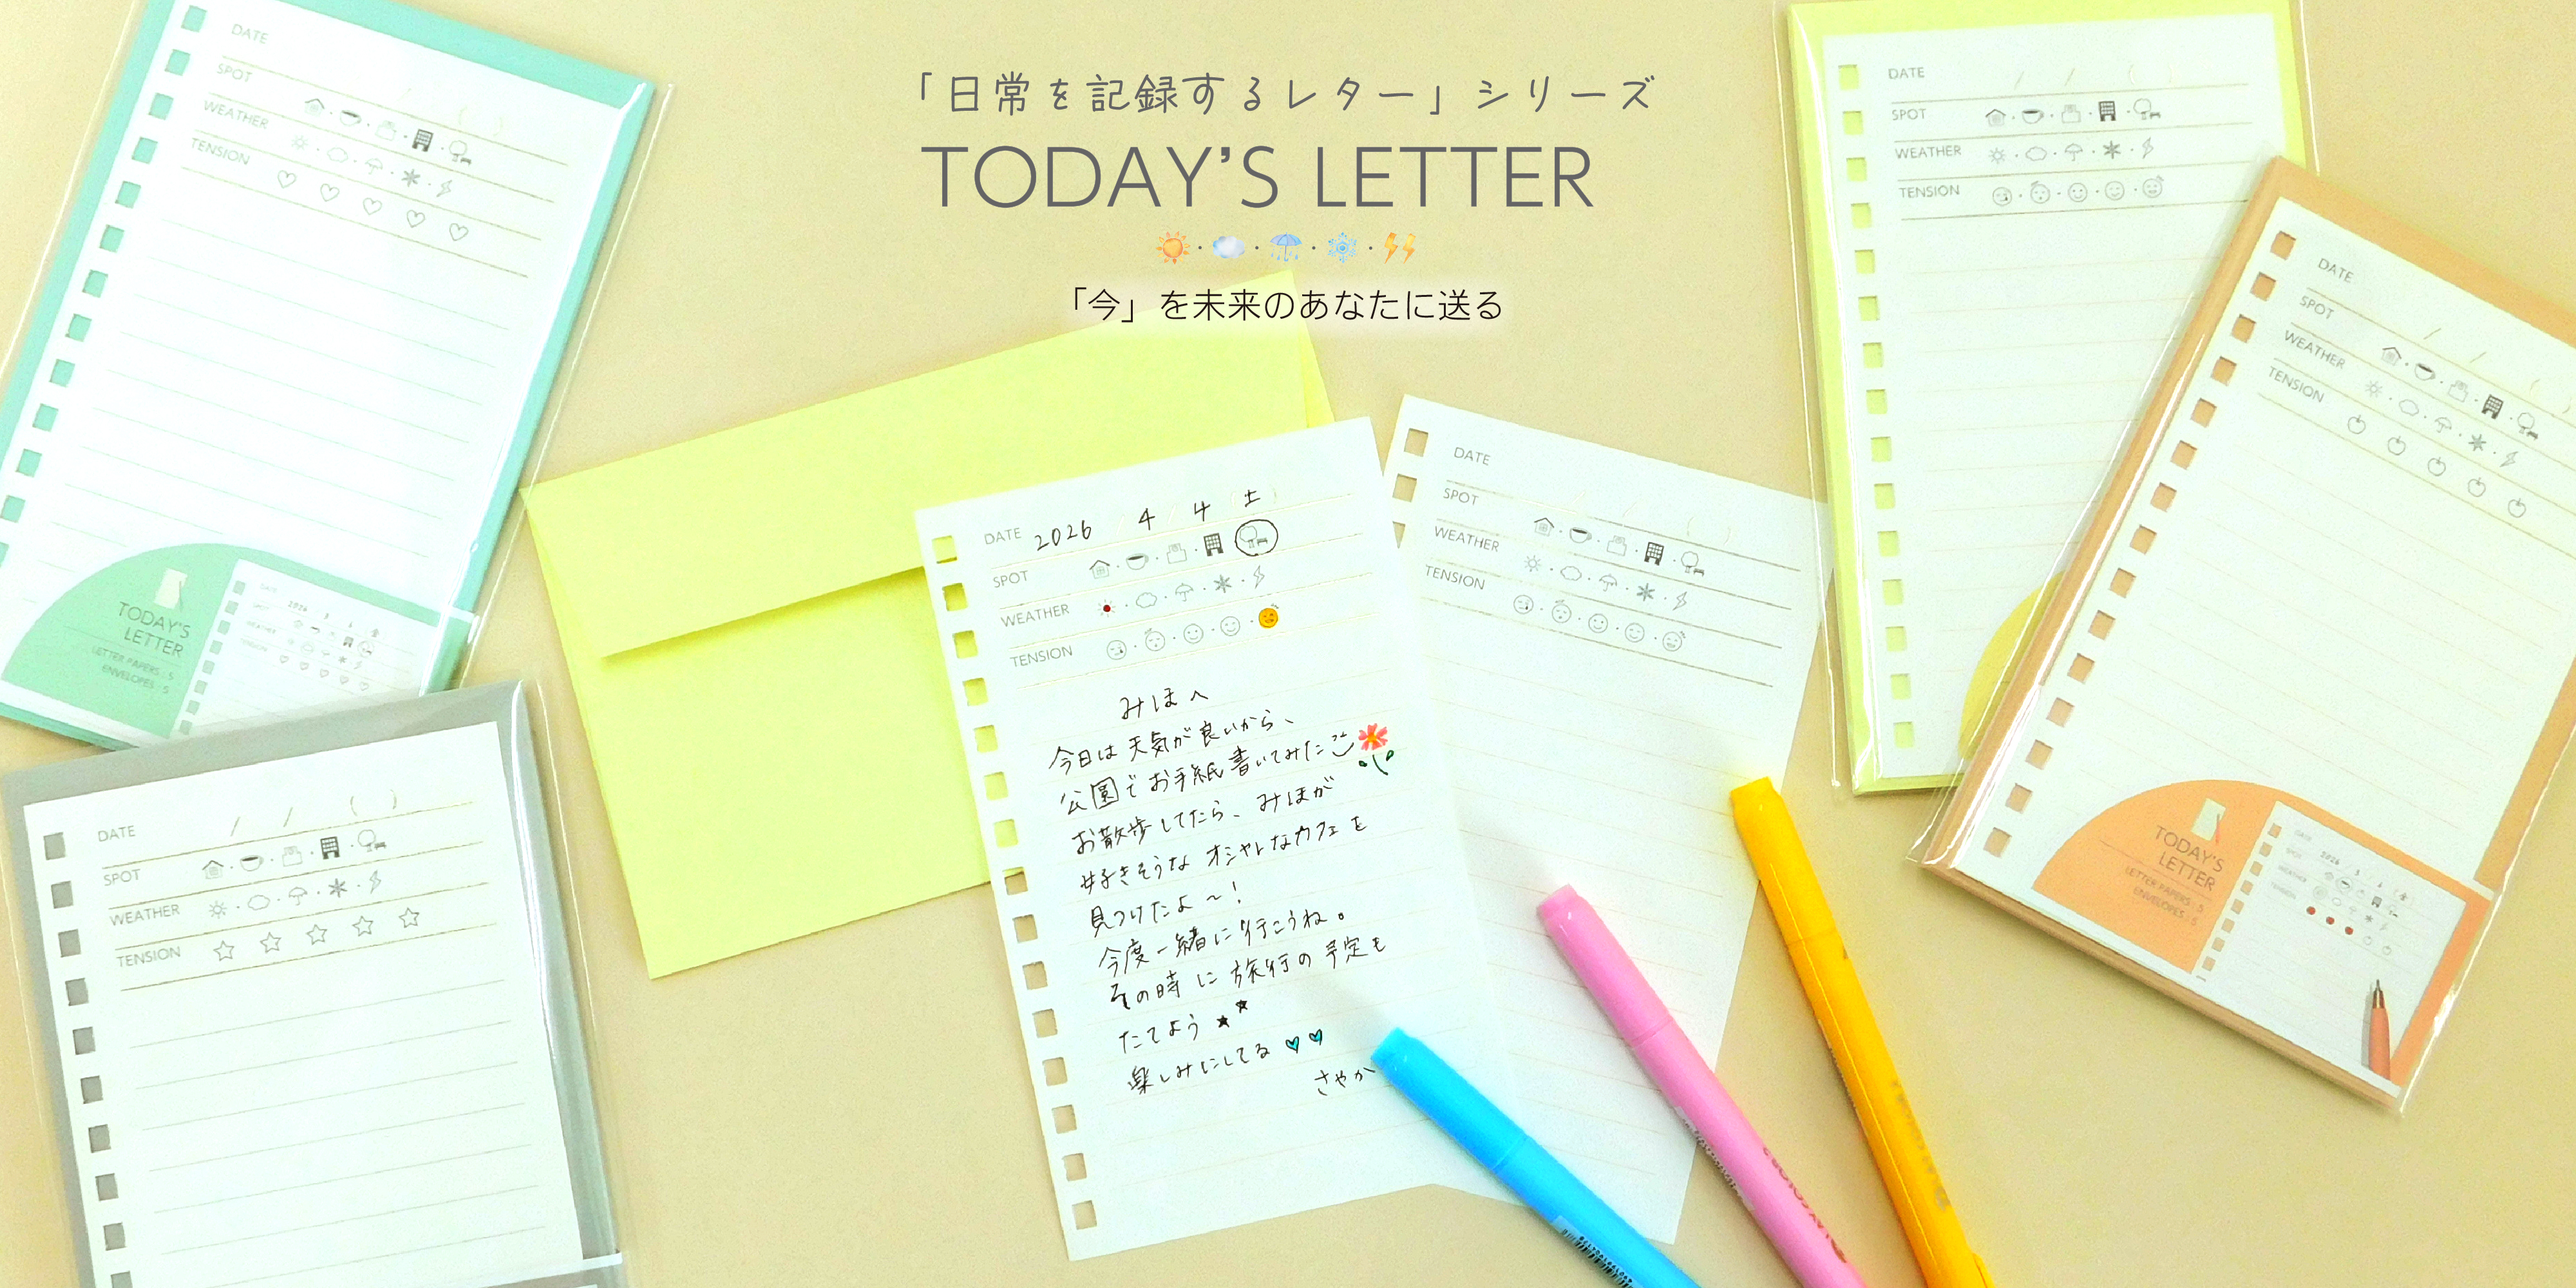 「日常を記録するレター」シリーズ
TODAY'S LETTER
「今」を未来のあなたに送る
DATE
SPOT
WEATHER
TENSION
TODAY'S
LETTER
LETTER PAPERS : 5
ENVELOPES : 5
DATE / / ( )
SPOT
WEATHER
TENSION
DATE 2026 4 4 (土)
SPOT
WEATHER
TENSION
みほへ
今日は天気が良いから、
公園でお手紙書いてみた
お散歩してたら、みほが
好きそうなオシャレなカフェを
見つけたよ〜!
今度一緒に行こうね。
その時に旅行の予定も
たてよう★★
楽しみにしてる♡♡
さやか
DATE
SPOT
WEATHER
TENSION
DATE / / ( )
SPOT
WEATHER
TENSION
DATE / / ( )
SPOT
WEATHER
TENSION
TODAY'S
LETTER
LETTER PAPERS : 5
ENVELOPES : 5